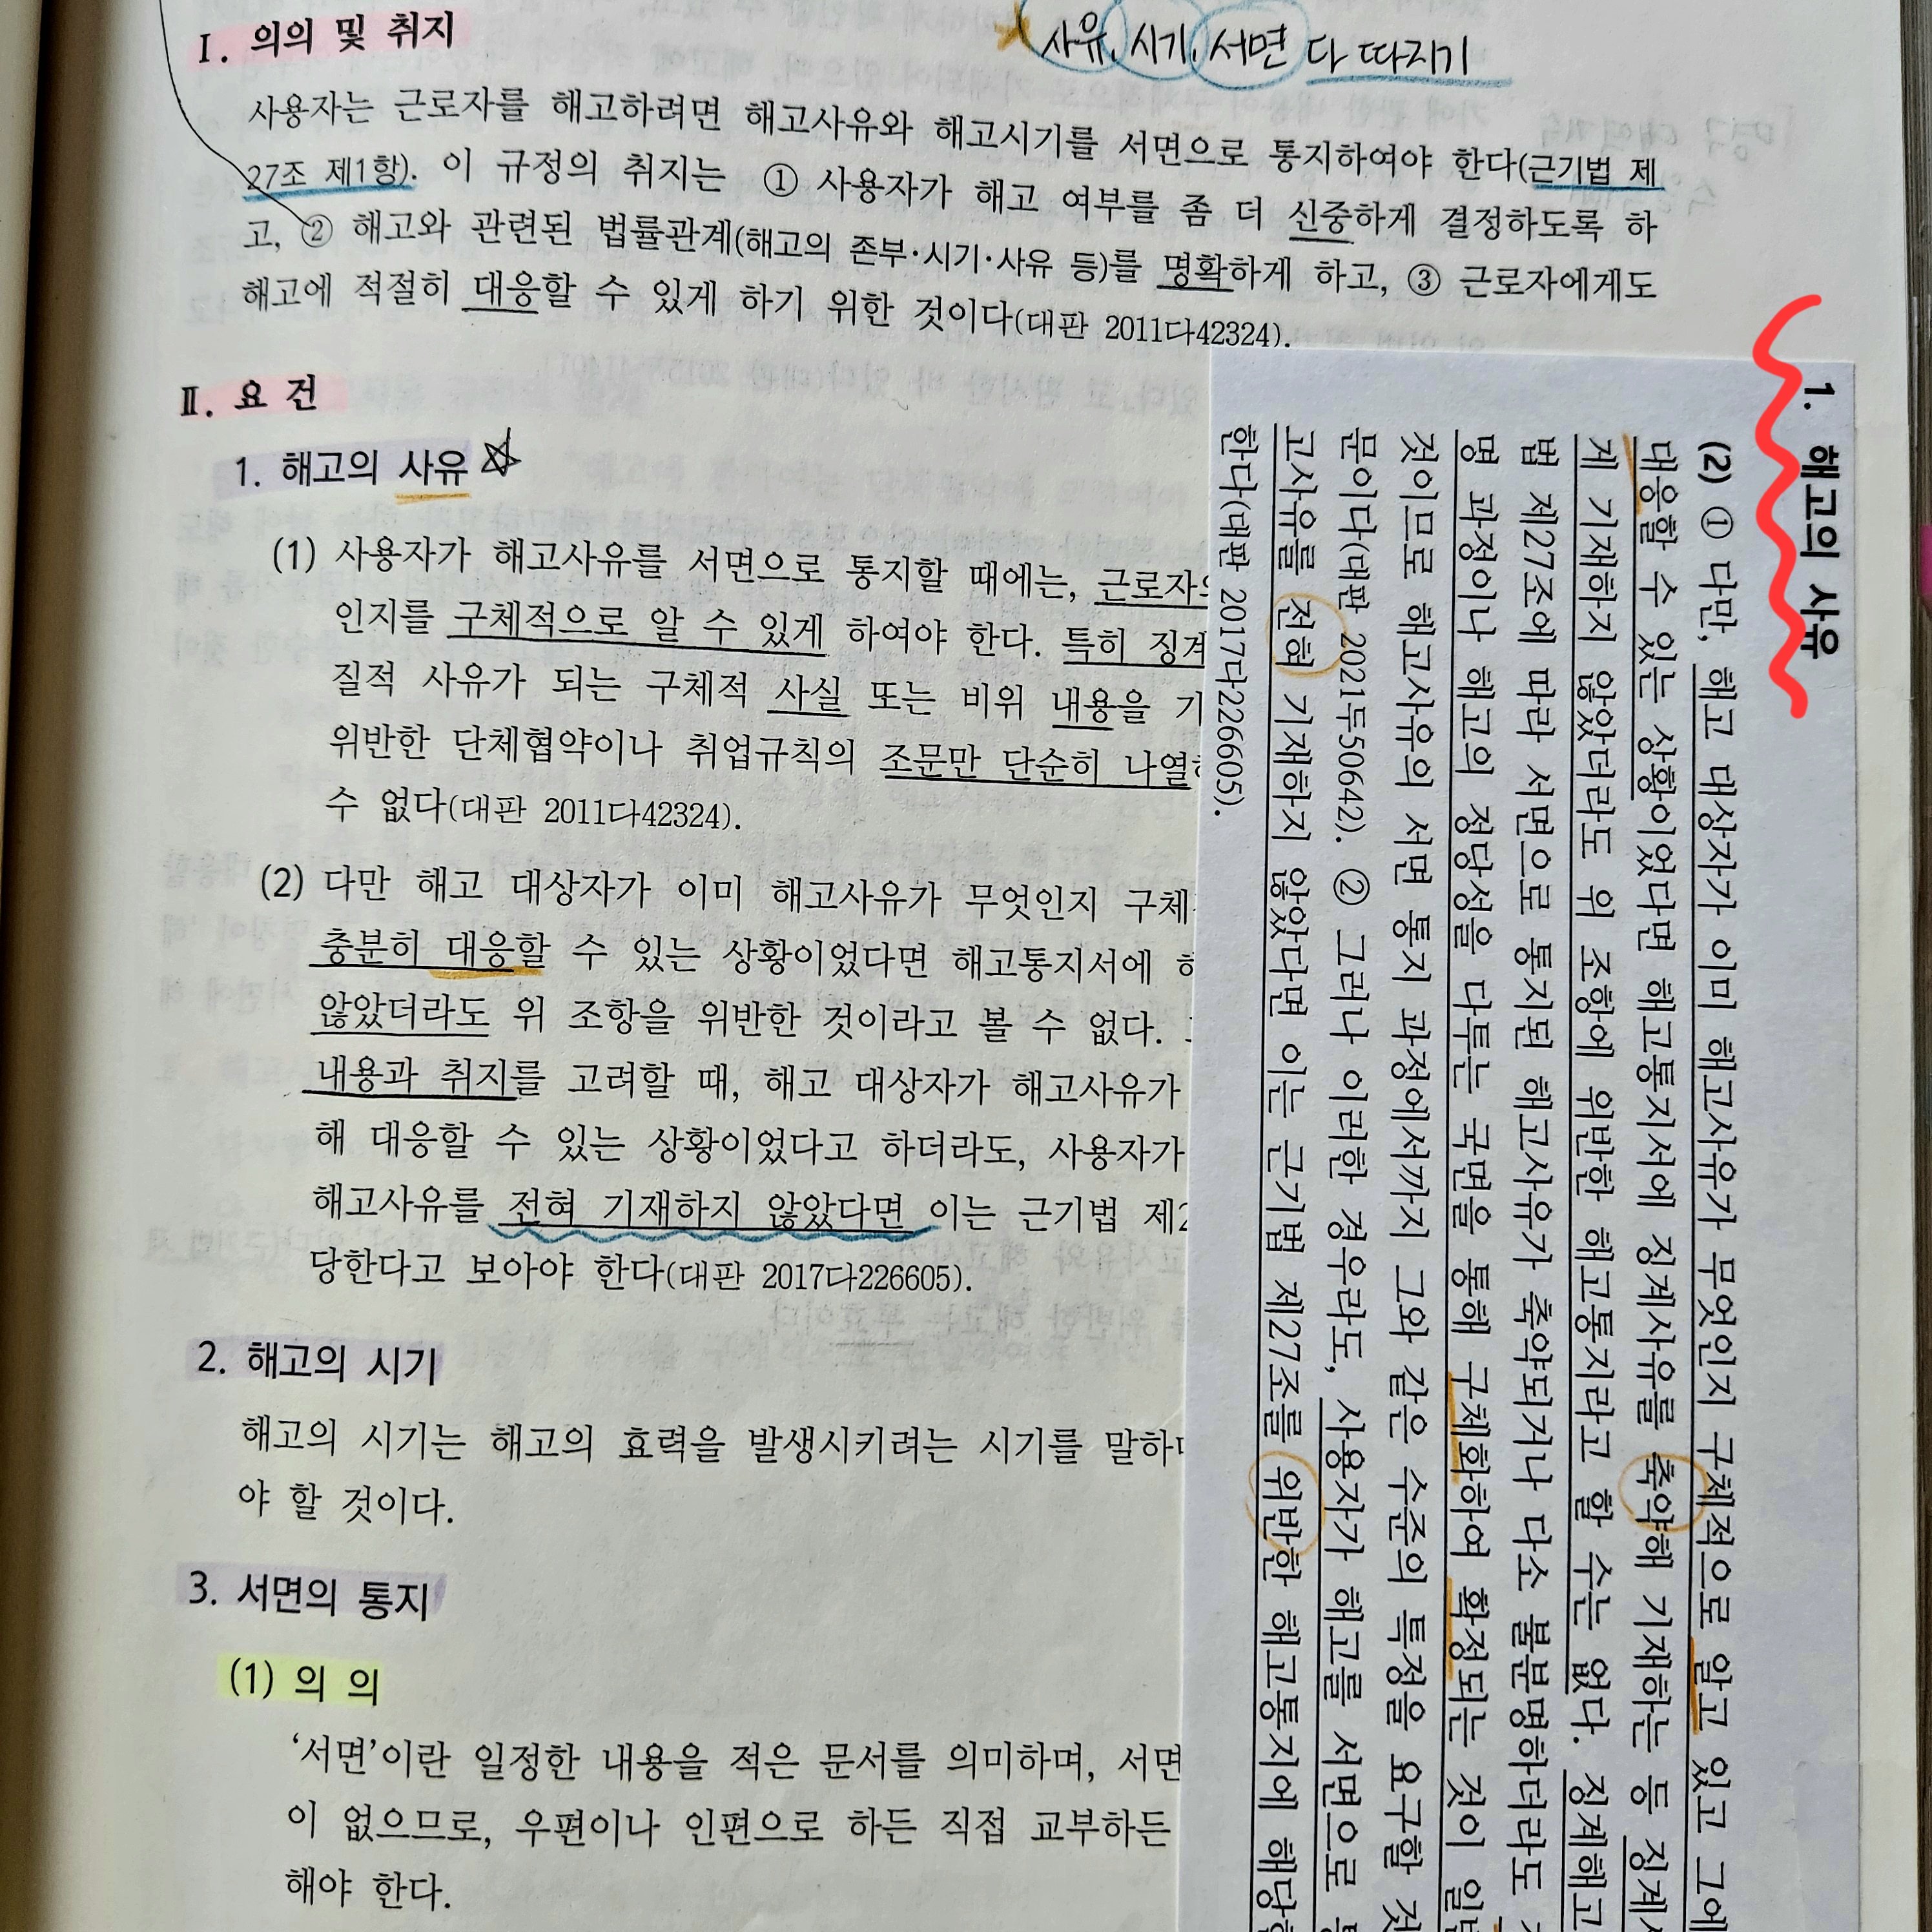 I. 의의 및 취지
사유, 시기, 서면 다 따지기
사용자는 근로자를 해고하려면 해고사유와 해고시기를 서면으로 통지하여야 한다(근기법 제
27조 제1항). 이 규정의 취지는 ① 사용자가 해고 여부를 좀 더 신중하게 결정하도록 하
고, ② 해고와 관련된 법률관계(해고의 존부·시기·사유 등)를 명확하게 하고, ③ 근로자에게도
해고에 적절히 대응할 수 있게 하기 위한 것이다(대판 2011다42324).
II. 요 건
1. 해고의 사유
(1) 사용자가 해고사유를 서면으로 통지할 때에는, 근로자의
인지를 구체적으로 알 수 있게 하여야 한다. 특히 징계
질적 사유가 되는 구체적 사실 또는 비위 내용을 기
위반한 단체협약이나 취업규칙의 조문만 단순히 나열하
수 없다(대판 2011다42324).
(2) 다만 해고 대상자가 이미 해고사유가 무엇인지 구체
충분히 대응할 수 있는 상황이었다면 해고통지서에 해
않았더라도 위 조항을 위반한 것이라고 볼 수 없다.
내용과 취지를 고려할 때, 해고 대상자가 해고사유가
해 대응할 수 있는 상황이었다고 하더라도, 사용자가
해고사유를 전혀 기재하지 않았다면 이는 근기법 제2
당한다고 보아야 한다(대판 2017다226605).
2. 해고의 시기
해고의 시기는 해고의 효력을 발생시키려는 시기를 말하
야 할 것이다.
3. 서면의 통지
(1) 의 의
‘서면’이란 일정한 내용을 적은 문서를 의미하며, 서면
이 없으므로, 우편이나 인편으로 하든 직접 교부하든
해야 한다.
1. 해고의 사유
(2) ① 다만, 해고 대상자가 이미 해고사유가 무엇인지 구체적으로 알고 있고 그에
대응할 수 있는 상황이었다면 해고통지서에 징계사유를 축약해 기재하는 등 징계사
게 기재하지 않았더라도 위 조항에 위반한 해고통지라고 할 수는 없다. 징계해고
법 제27조에 따라 서면으로 통지된 해고사유가 축약되거나 다소 불분명하더라도
명 과정이나 해고의 정당성을 다투는 국면을 통해 구체화하여 확정되는 것이 일반
것이므로 해고사유의 서면 통지 과정에서까지 그와 같은 수준의 특정을 요구할 것
문이다(대판 2021두50642). ② 그러나 이러한 경우라도, 사용자가 해고를 서면으로 통
고사유를 전혀 기재하지 않았다면 이는 근기법 제27조를 위반한 해고통지에 해당한
한다(대판 2017다226605).